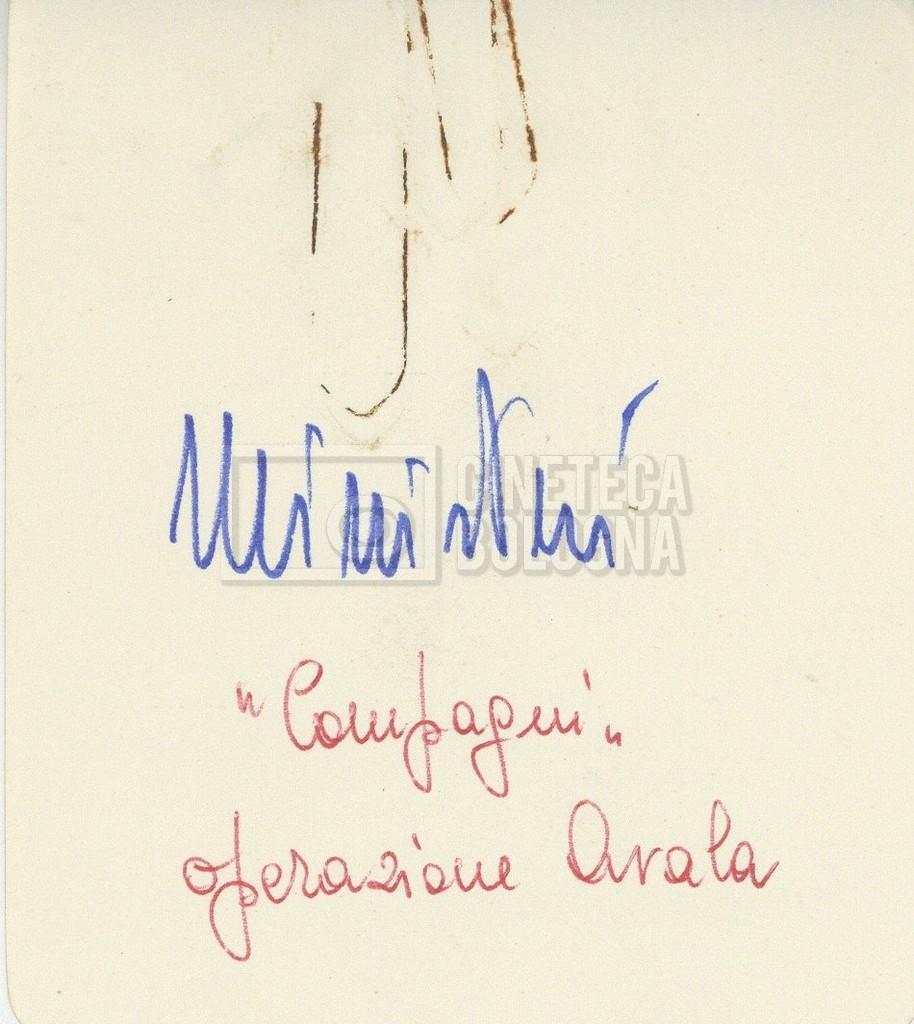 Ministri
CINETECA
BOLOGNA
"Compagni"
operazione Avala